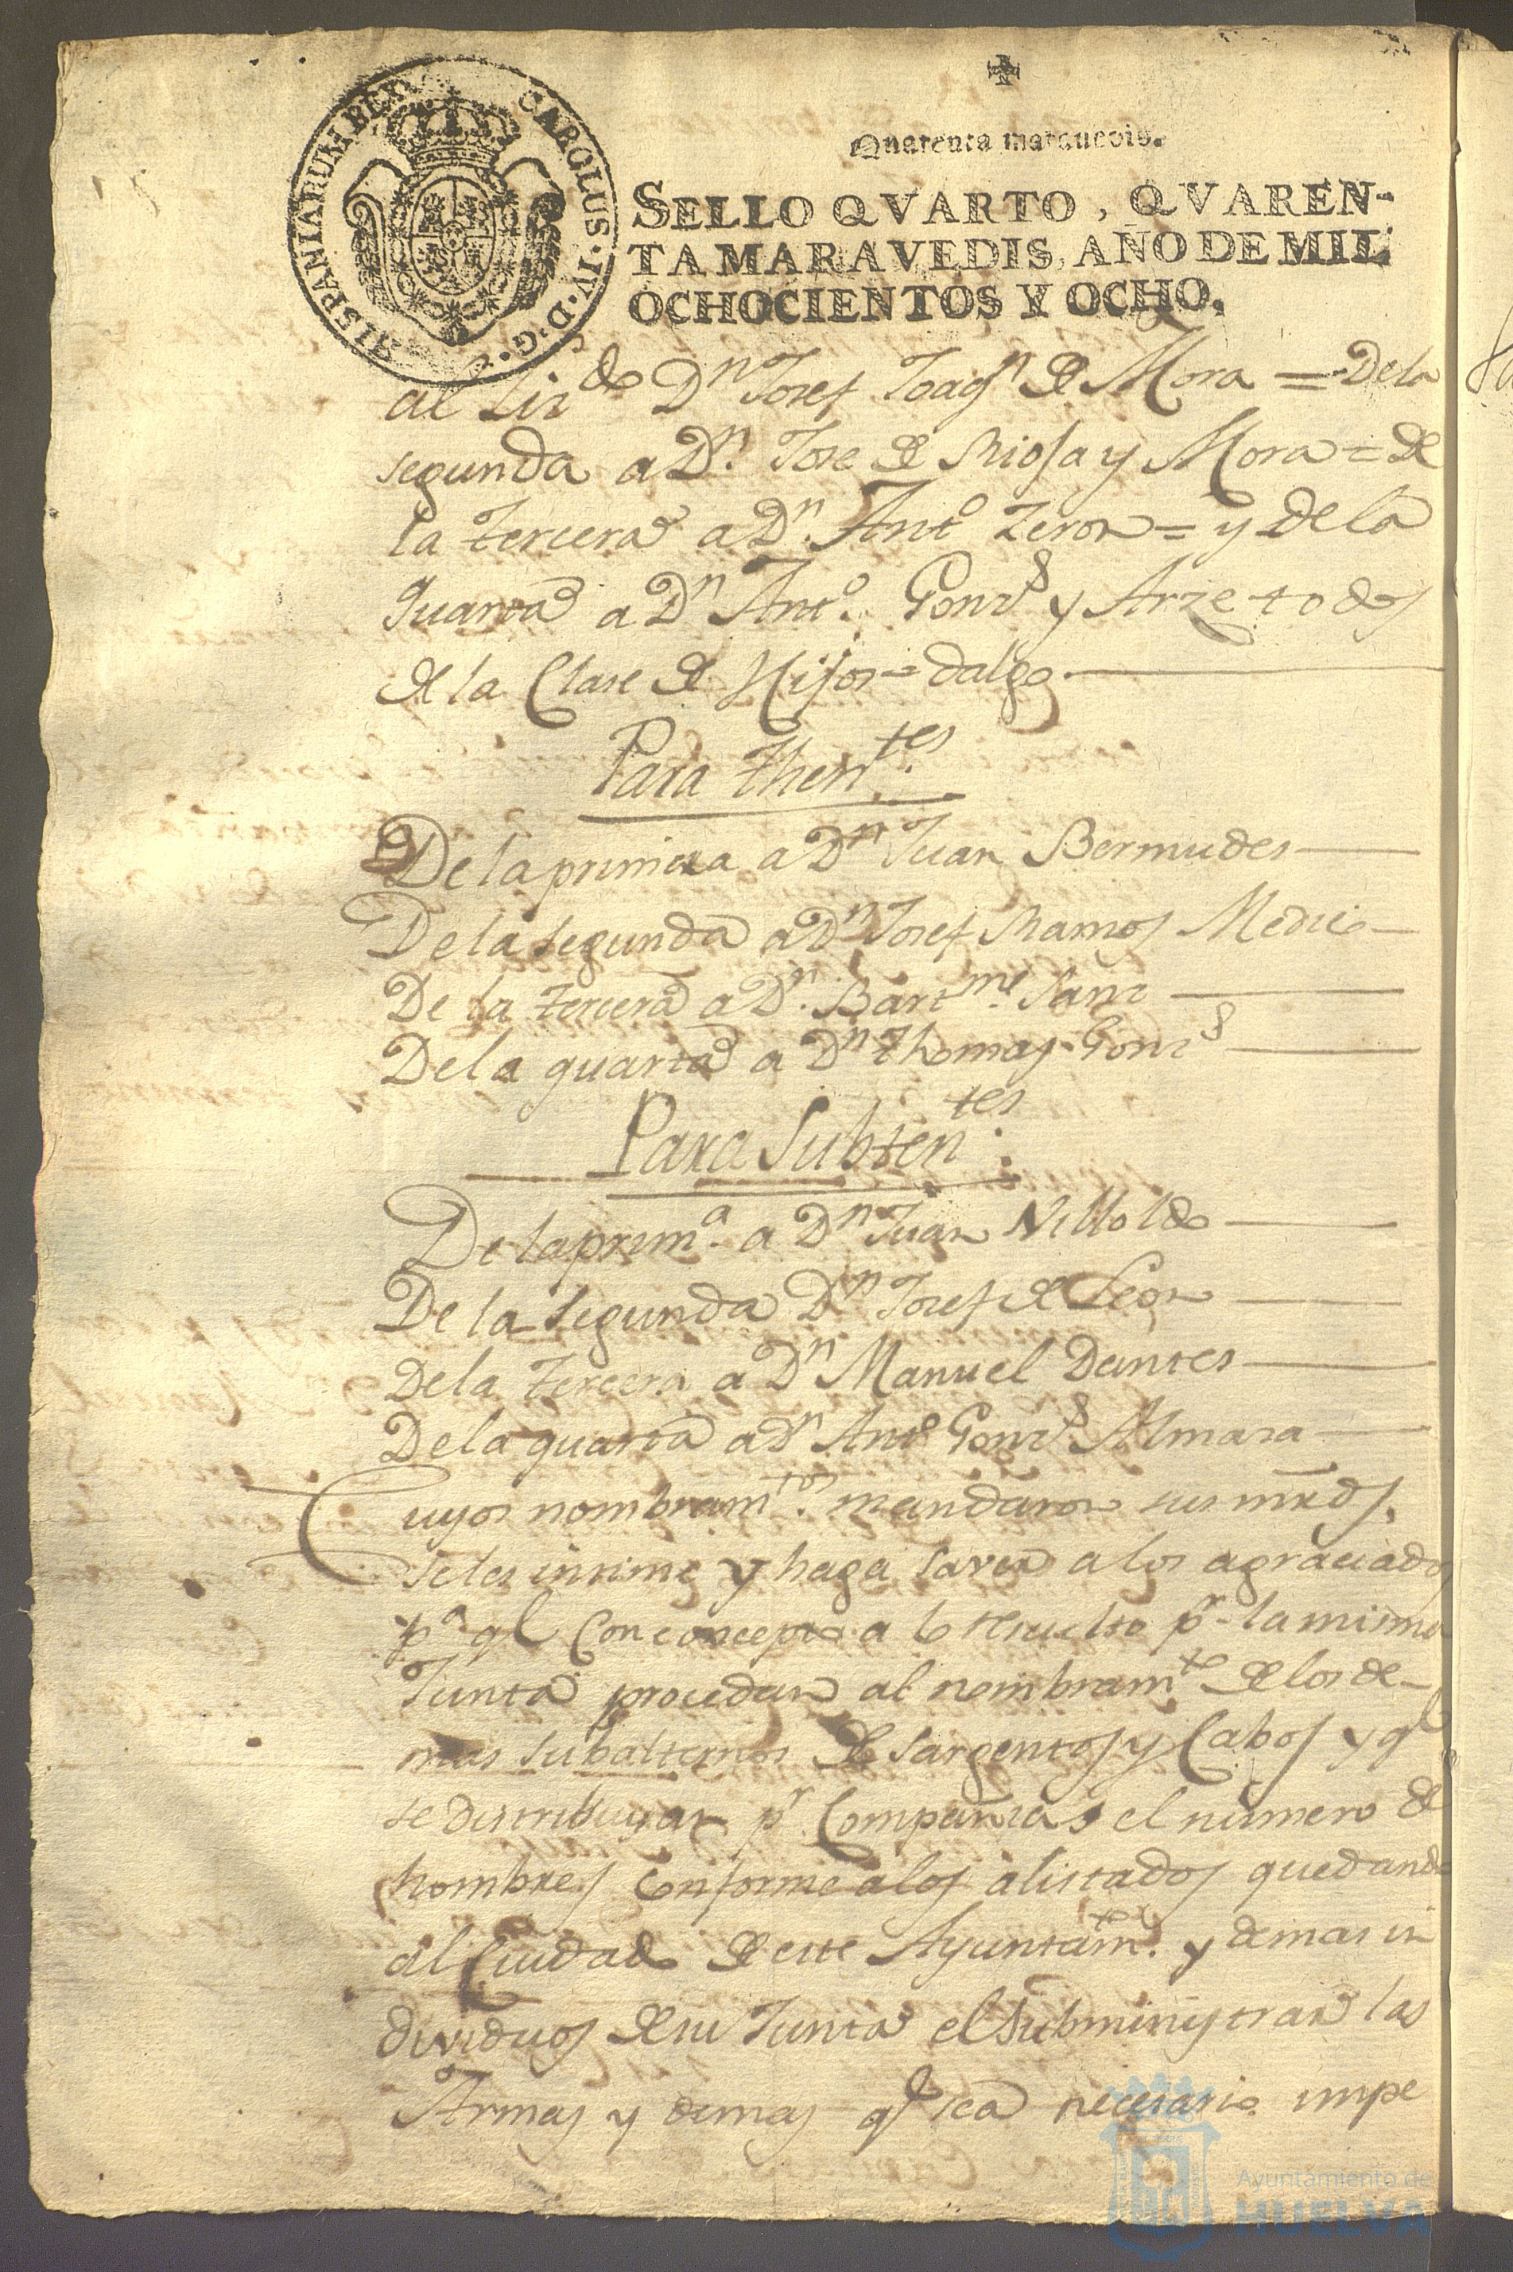 HISPANIARUM REX CAROLUS · IV · D · G ·
Quarenta marauedis.
SELLO QVARTO, QVAREN-
TA MARAVEDIS, AÑO DE MIL
OCHOCIENTOS Y OCHO.
al Lizdo Dn Josef Joaqn de Mora = De la
segunda a Dn. Jose de Riosa y Mora = de
la tercera a Dn. Anto Zeron = y de la
quarta a Dn Anto. Gonzs y Arze todos
de la Clase de Hijos=dalgo.
Para Thentes.
De la primera a Dn Juan Bermudes
De la segunda a Dn Josef Ramos Medico
De la tercera a Dn. Bartme Sanz
De la quarta a Dn Thomas Gonzs
Para Subtentes.
De la prima. a Dn Juan Villoldo
De la segunda Dn Josef de Leon
De la tercera a Dn Manuel Dantes
De la quarta a Dn Anto Gonzs Almara
Cuyos nombramtos. mandaron sus mrds.
se les intime y haga saver a los agraciados
pa. qe con concepto a lo resuelto pr. la misma
Junta procedan al nombramto de los de-
mas subalternos de Sargentos y Cabos y qe
se distribuyan pr. Compañias el número de
hombres conforme a los alistados quedando
al Cuidado de este Ayuntamto. y demas in
dividuos de su Junta el subministrar las
Armas y demas qe sea necesario impe
Ayuntamiento de
HUELVA